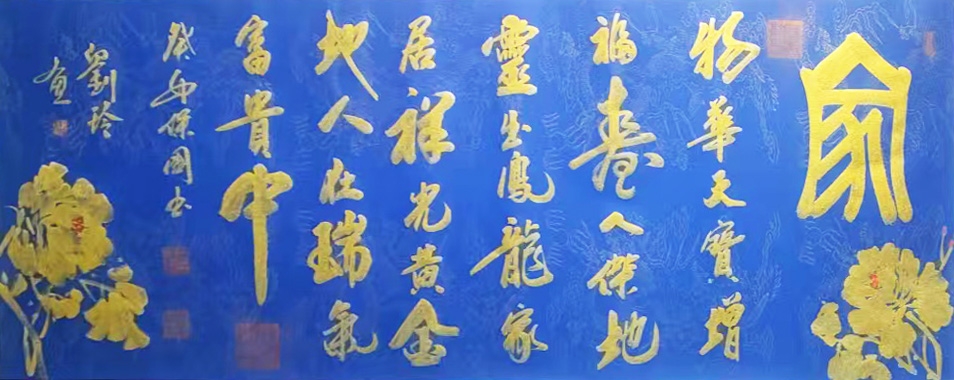 家
物華天寶增
福壽人傑地
靈出鳳龍家
居祥光黃金
地人壯瑞氣
富貴中
癸卯保國書
劉玲
畫